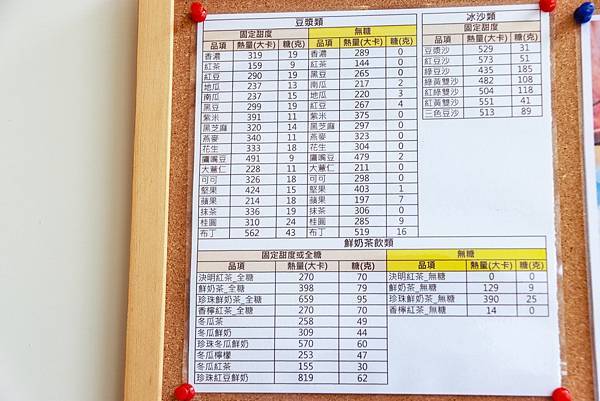 豆漿類
固定甜度 無糖
品項 熱量(大卡) 糖(克) 品項 熱量(大卡) 糖(克)
香濃 319 19 香濃 289 0
紅茶 159 9 紅茶 144 0
紅豆 290 19 黑豆 265 0
地瓜 237 13 南瓜 217 2
南瓜 237 15 地瓜 220 3
黑豆 299 19 紅豆 267 4
紫米 391 11 紫米 375 0
黑芝麻 320 14 黑芝麻 297 0
燕麥 340 11 燕麥 323 0
花生 333 18 花生 304 0
鷹嘴豆 491 9 鷹嘴豆 479 2
大薏仁 228 11 大薏仁 211 0
可可 326 18 可可 298 0
堅果 424 15 堅果 403 1
蘋果 214 18 蘋果 197 7
抹茶 336 19 抹茶 306 0
桂圓 310 24 桂圓 285 9
布丁 562 43 布丁 519 16
冰沙類
固定甜度
品項 熱量(大卡) 糖(克)
豆漿沙 529 31
紅豆沙 573 51
綠豆沙 435 185
綠黃雙沙 482 108
紅綠雙沙 504 118
紅黃雙沙 551 41
三色豆沙 513 89
鮮奶茶飲類
固定甜度或全糖 無糖
品項 熱量(大卡) 糖(克) 品項 熱量(大卡) 糖(克)
決明紅茶_全糖 270 70 決明紅茶_無糖 0 0
鮮奶茶_全糖 398 79 鮮奶茶_無糖 129 9
珍珠鮮奶茶_全糖 659 95 珍珠鮮奶茶_無糖 390 25
香檸紅茶_全糖 270 70 香檸紅茶_無糖 14 0
冬瓜茶 258 49
冬瓜鮮奶 309 44
珍珠冬瓜鮮奶 570 60
冬瓜檸檬 253 47
冬瓜紅茶 155 30
珍珠紅豆鮮奶 819 62